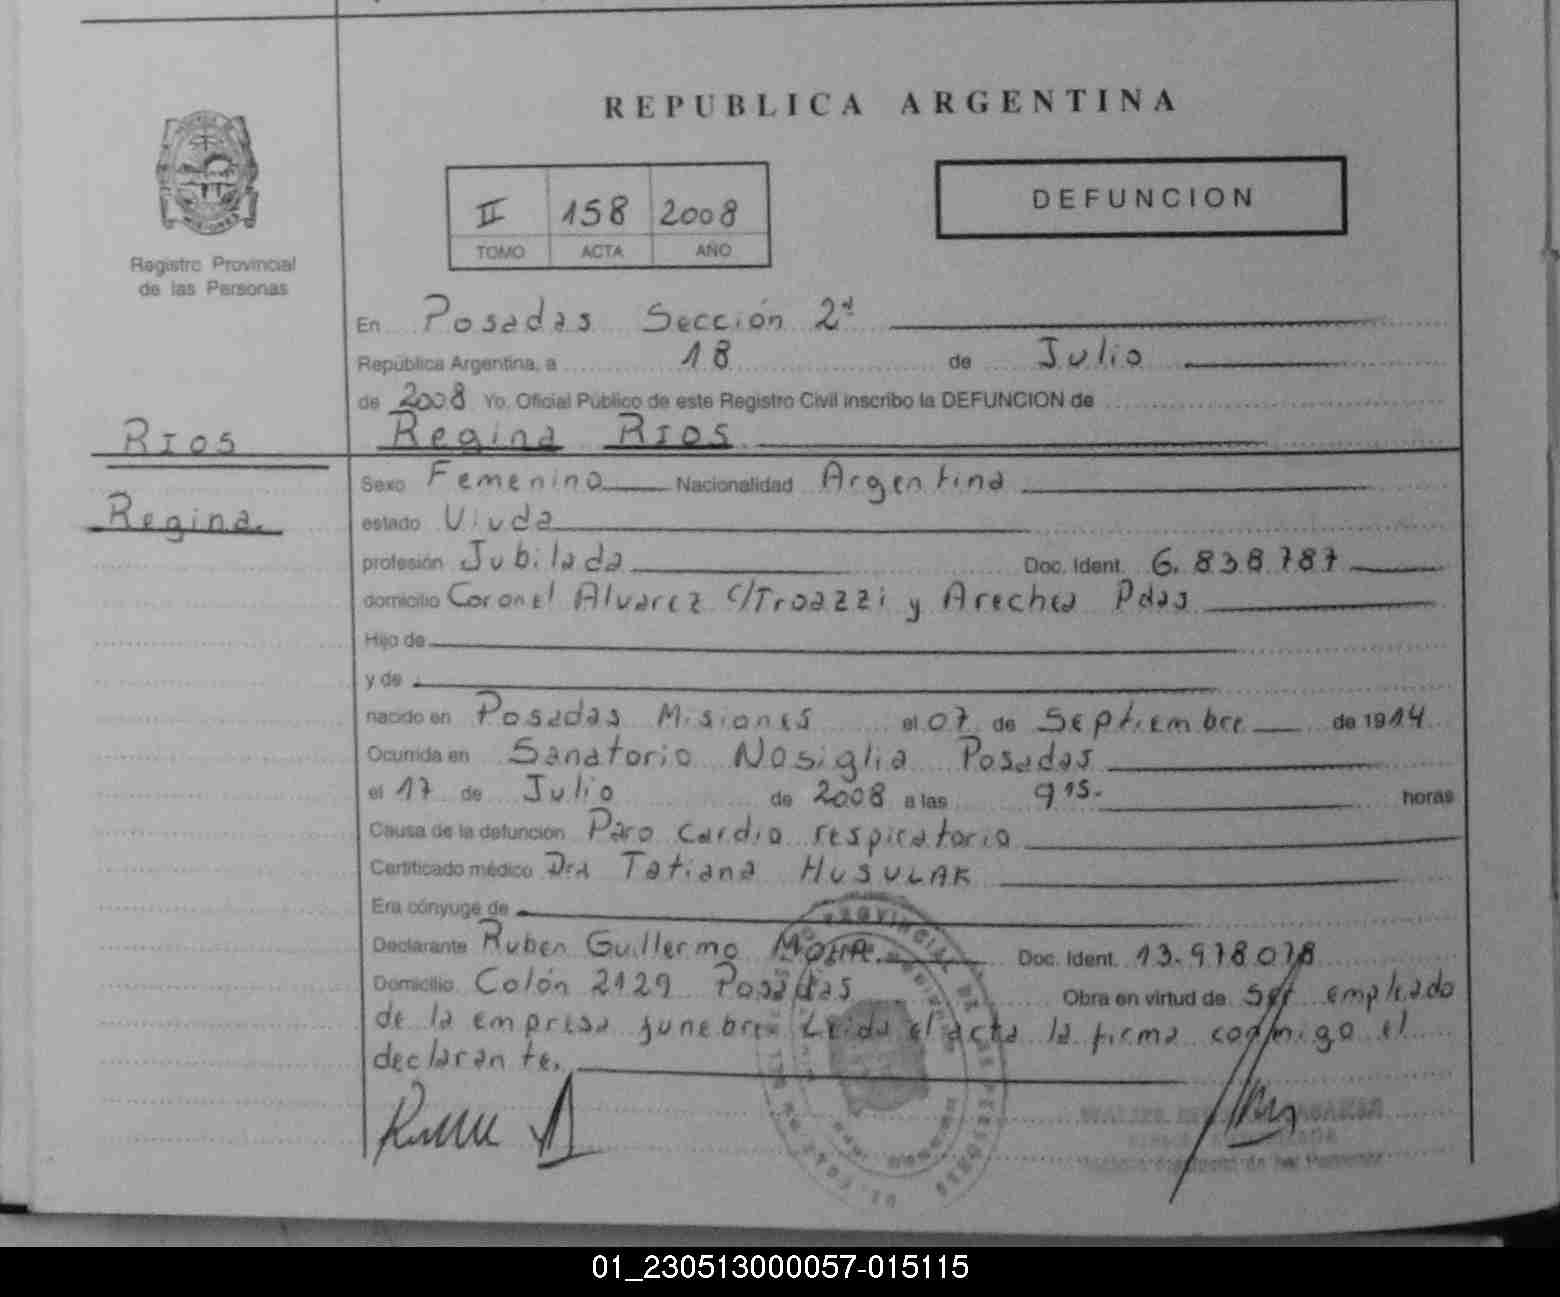 REPUBLICA ARGENTINA
II 158 2008
TOMO ACTA AÑO
DEFUNCION
Registro Provincial
de las Personas
En Posadas Sección 2ª
República Argentina, a 18 de Julio
de 2008 Yo, Oficial Público de este Registro Civil inscribo la DEFUNCION de
Regina RIOS
RIOS
Regina
Sexo Femenino Nacionalidad Argentina
estado Viuda
profesión Jubilada Doc. Ident. 6.838.787
domicilio Coronel Alvarez C/Troazzi y Arechea Pdas
Hijo de
y de
nacido en Posadas Misiones el 07 de Septiembre de 1914
Ocurrida en Sanatorio Nosiglia Posadas
el 17 de Julio de 2008 a las 9 15- horas
Causa de la defunción Paro Cardio respiratorio
Certificado médico Dra Tatiana HUSULAK
Era cónyuge de
Declarante Ruben Guillermo Doc. Ident. 13.978.078
Domicilio Colón 2129 Posadas Obra en virtud de ser empleado
de la empresa funebre Leida el acta la firma conmigo el
declarante.
01_230513000057-015115